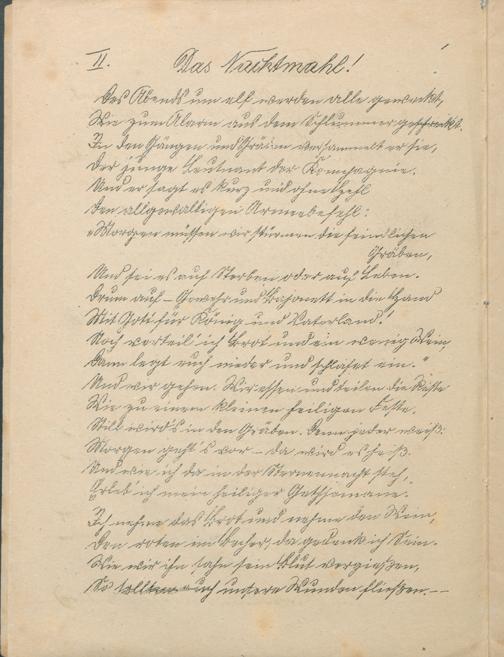 II. Das Nachtmahl!
Des Abends um elf werden alle geweckt,
Wie zum Alarm aus dem Schlummer geschreckt.
In den Gängen und Gräben versammelt er sie,
Der junge Leutnant der Kompagnie.
Und er sagt es kurz und ohne Hehl
Den allgewaltigen Armeebefehl:
„Morgen müssen wir stürmen die feindlichen
Gräben,
Und sei es auf Sterben oder auf Leben.
Drum auf – Gewehr und Bajonett in die Hand
Mit Gott für König und Vaterland!
Noch verteil ich Brot und ein wenig Wein,
Dann legt euch nieder und schlafet ein."
Und wir gehen. Wir essen und teilen die Reste
Wie zu einem kleinen heiligen Feste.
Still wird's in den Gräben. Denn jeder weiß:
Morgen geht's vor – da wird es heiß.
Und wie ich da in der Sternennacht steh,
Erleb' ich mein heiliger Gethsemane.
Ich nehme das Brot und nehme den Wein,
Den roten im Becher, da gedenk ich Sein.
Wie wir ihn sahn sein Blut vergießen,
So sollten auch unsere Wunden fließen. –